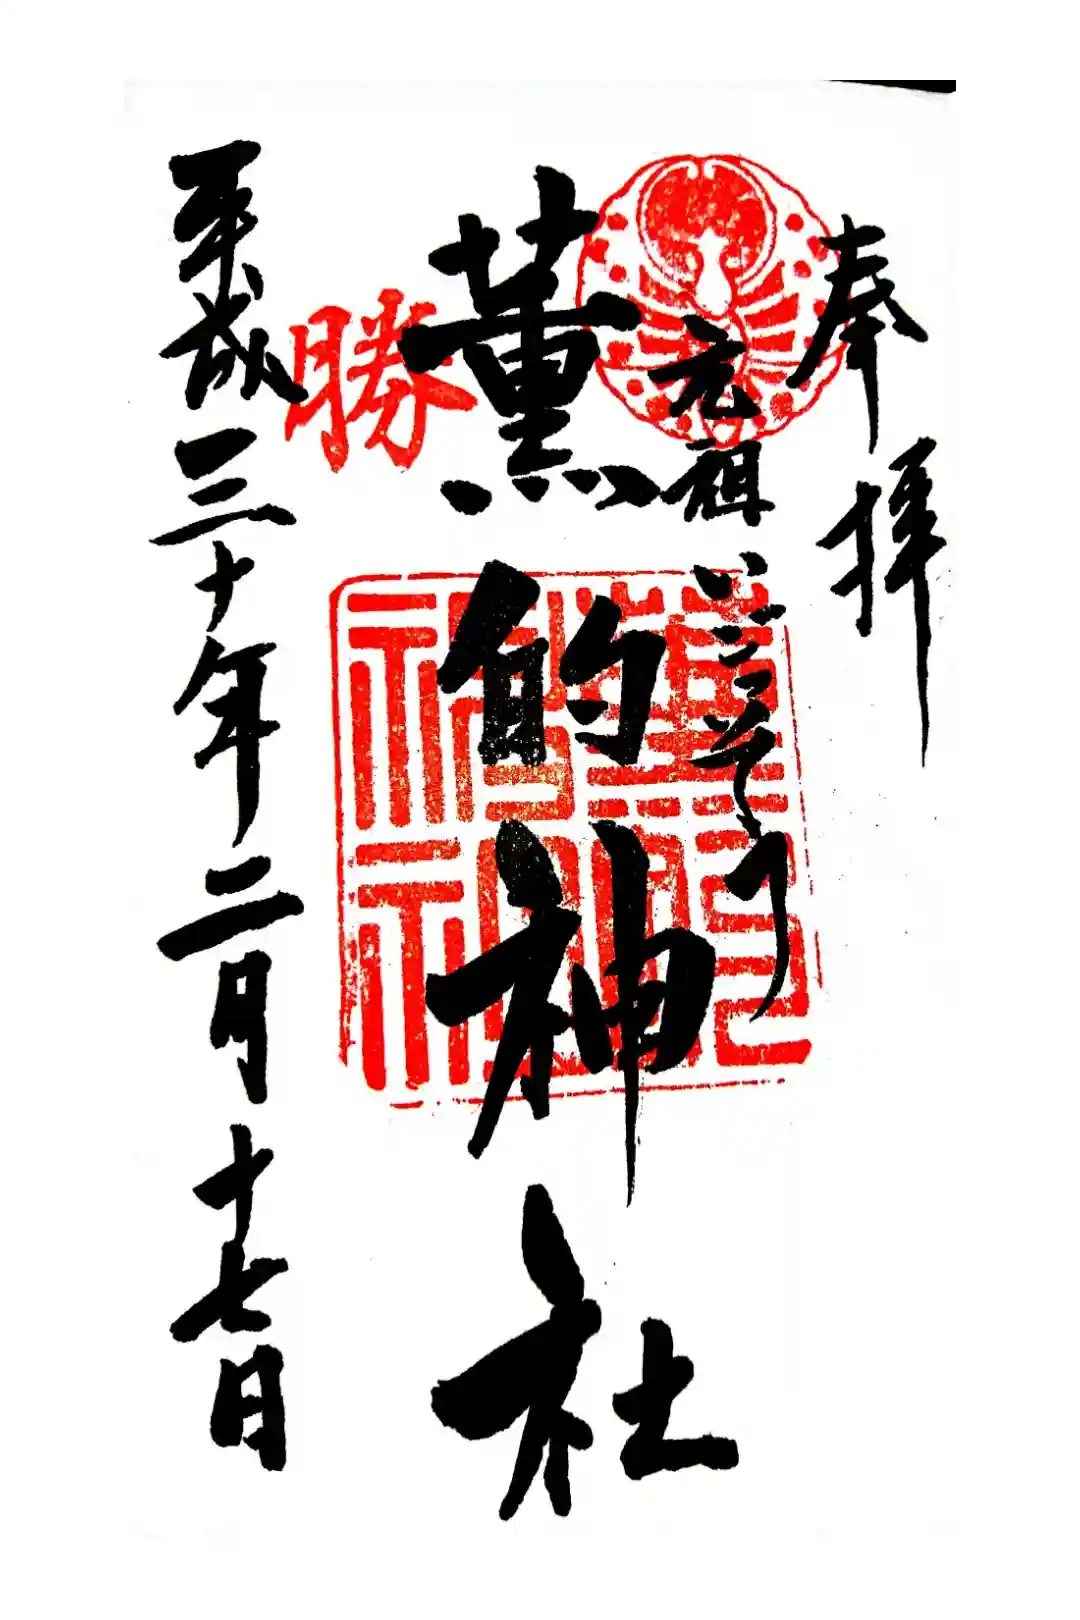 奉拝
元祖いごっそう
薫的神社
勝
平成三十年二月十七日
薫的神社